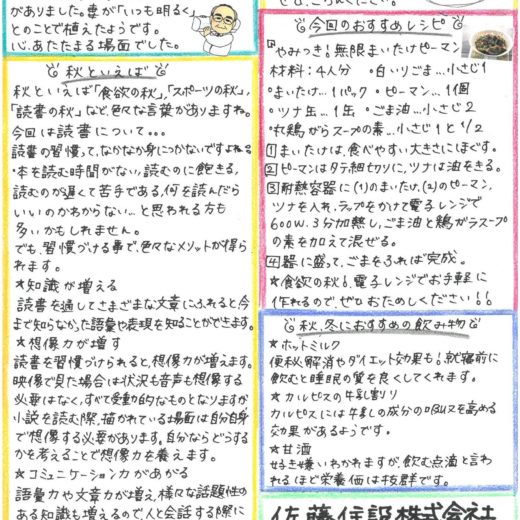 がありました。妻が「いつも明るく」
とのことで植えたようです。
心、あたたまる場面でした。
秋といえば
秋といえば「食欲の秋」、「スポーツの秋」、
「読書の秋」など、色々な言葉がありますね。
今回は読書について...
読書の習慣って、なかなか身につかないですよね。
・本を読む時間がない、読むのに飽きる、
読むのが遅くて苦手である、何を読んだら
いいのかわからない...と思われる方も
多いかもしれません。
でも、習慣づける事で、色々なメリットが得ら
れます。
★知識が増える
読書を通してさまざまな文章にふれると今
まで知らなかった語彙や表現を知ることができます。
★想像力が増す
読書を習慣づけられると、想像力が増えます。
映像で見た場合は状況も音声も想像する
必要はなく、すべて受動的なものとなりますが
小説を読む際、描かれている場面は自分自身
で想像する必要があります。自分ならどうする
かを考えることで想像力を養えます。
★コミュニケーション力があがる
語彙力や文章力が増え、様々な話題性の
ある知識も増えるので、人と会話する際に
今回のおすすめレシピ
『やみつき!無限まいたけピーマン
材料:4人分 ・白いりごま...小さじ1
・まいたけ...1パック ・ピーマン...1個
・ツナ缶...1缶 ・ごま油...小さじ2
・丸鶏がらスープの素...小さじ1と1/2
1 まいたけは、食べやすい大きさにほぐす。
2 ピーマンはタテ細切りに、ツナは油をきる。
3 耐熱容器に(1)のまいたけ、(2)のピーマン、
ツナを入れ、ラップをかけて電子レンジで
600W、3分加熱し、ごま油と鶏がらスープ
の素を加えて混ぜる。
4 器に盛って、ごまをふれば完成。
★食欲の秋!、電子レンジでお手軽に
作れるので、ぜひおためしください!!
秋、冬におすすめの飲み物
★ホットミルク
便秘解消やダイエット効果も!就寝前に
飲むと睡眠の質を良くしてくれます。
★カルピスの牛乳割り
カルピスには牛乳の成分の吸収を高める
効果があるようです。
★甘酒
好き嫌いわかれますが、飲む点滴と言わ
れるほど栄養価は抜群です。
佐藤住設株式会社